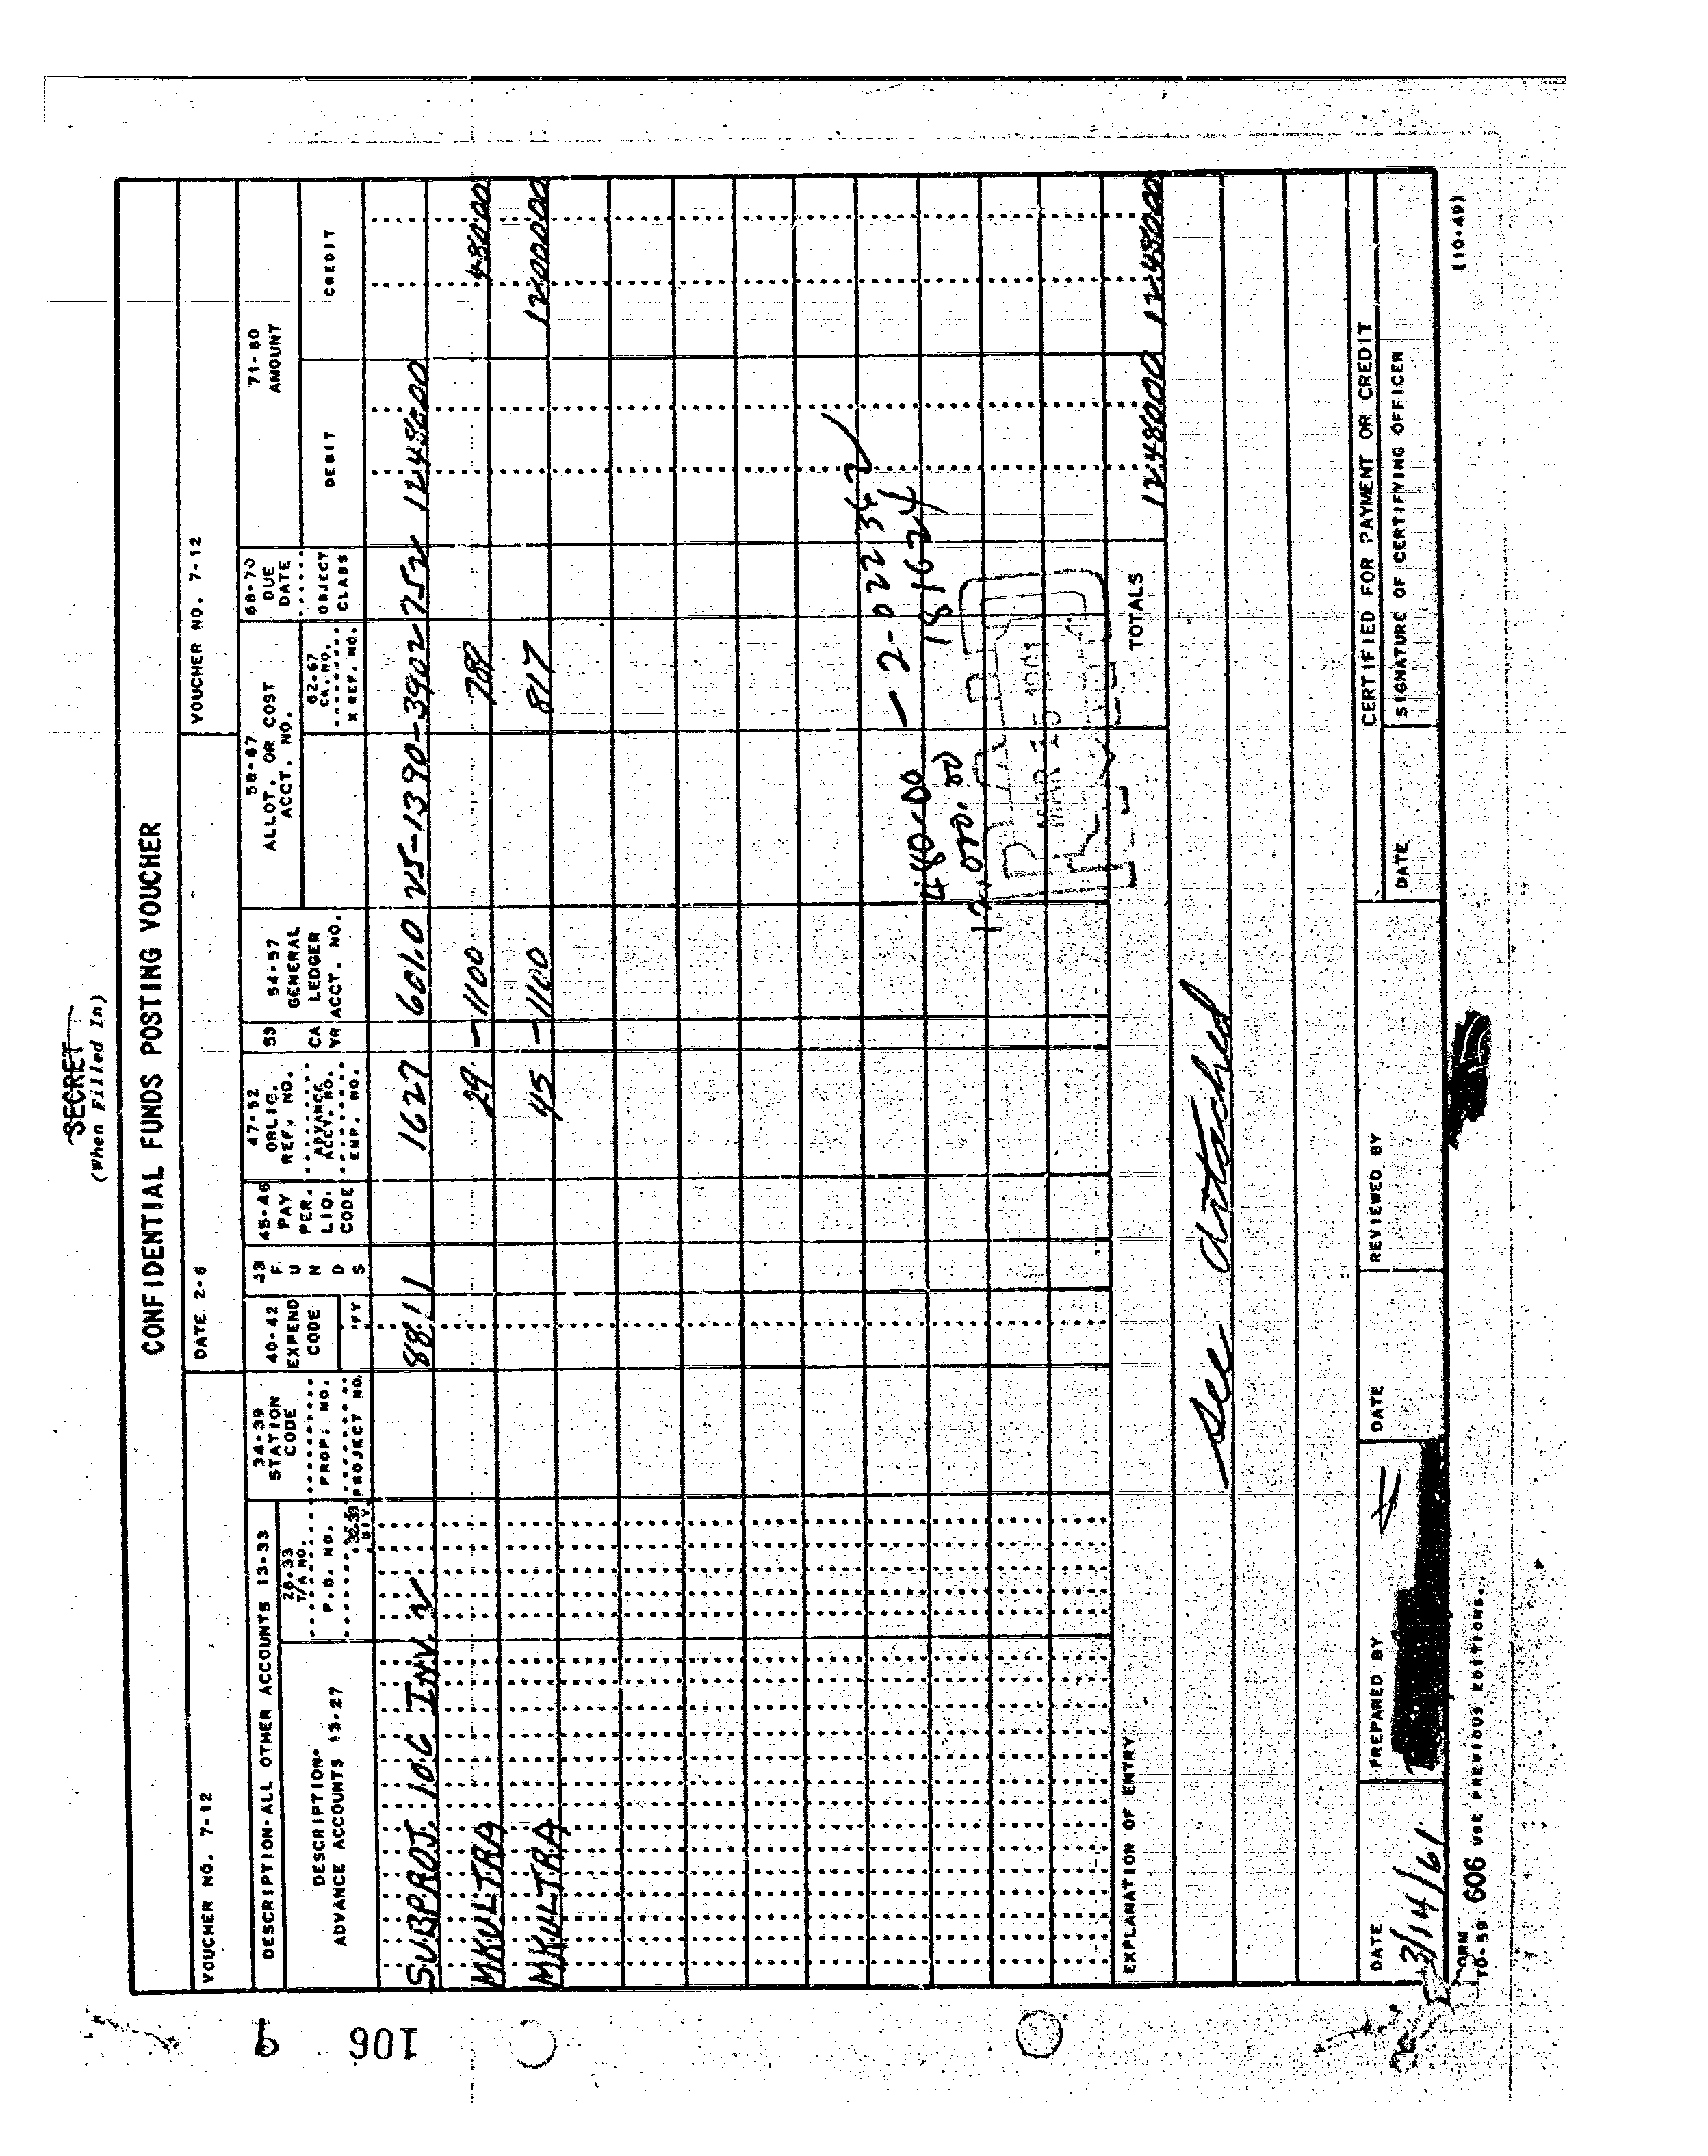 SECRET
(When Filled In)
CONFIDENTIAL FUNDS POSTING VOUCHER
VOUCHER NO. 7-12
DATE 2-6
VOUCHER NO. 7-12
DESCRIPTION-ALL OTHER ACCOUNTS 13-33
DESCRIPTION-
ADVANCE ACCOUNTS 13-27
28-33
T/A NO.
P.O. NO.
32-33
DIV
34-39
STATION
CODE
PROP. NO.
PROJECT NO.
40-42
EXPEND
CODE
FY
43
F
U
N
D
S
45-46
PAY
PER.
LIQ.
CODE
47-52
OBLIG.
REF. NO.
ADVANCE
ACCT. NO.
EMP. NO.
53
CA
YR
54-57
GENERAL
LEDGER
ACCT. NO.
58-67
ALLOT. OR COST
ACCT. NO.
62-67
CK. NO.
X REF. NO.
68-70
DUE
DATE
OBJECT
CLASS
71-80
AMOUNT
DEBIT
CREDIT
SUBPROJ. 106 INV. 2 88 1 1 1627 601.0 25-1390-3902 752 1248000
MKULTRA 29 -1100 789 48000
MKULTRA 45 -1100 817 1200000
480.00 - 2-022362
12,000.00) 181624
MAR 15 1961
TOTALS 1248000 1248000
EXPLANATION OF ENTRY
See Attached
CERTIFIED FOR PAYMENT OR CREDIT
DATE
3/14/61
PREPARED BY
DATE
REVIEWED BY
DATE
SIGNATURE OF CERTIFYING OFFICER
FORM
10-59 606 USE PREVIOUS EDITIONS.
(10-49)
106
9